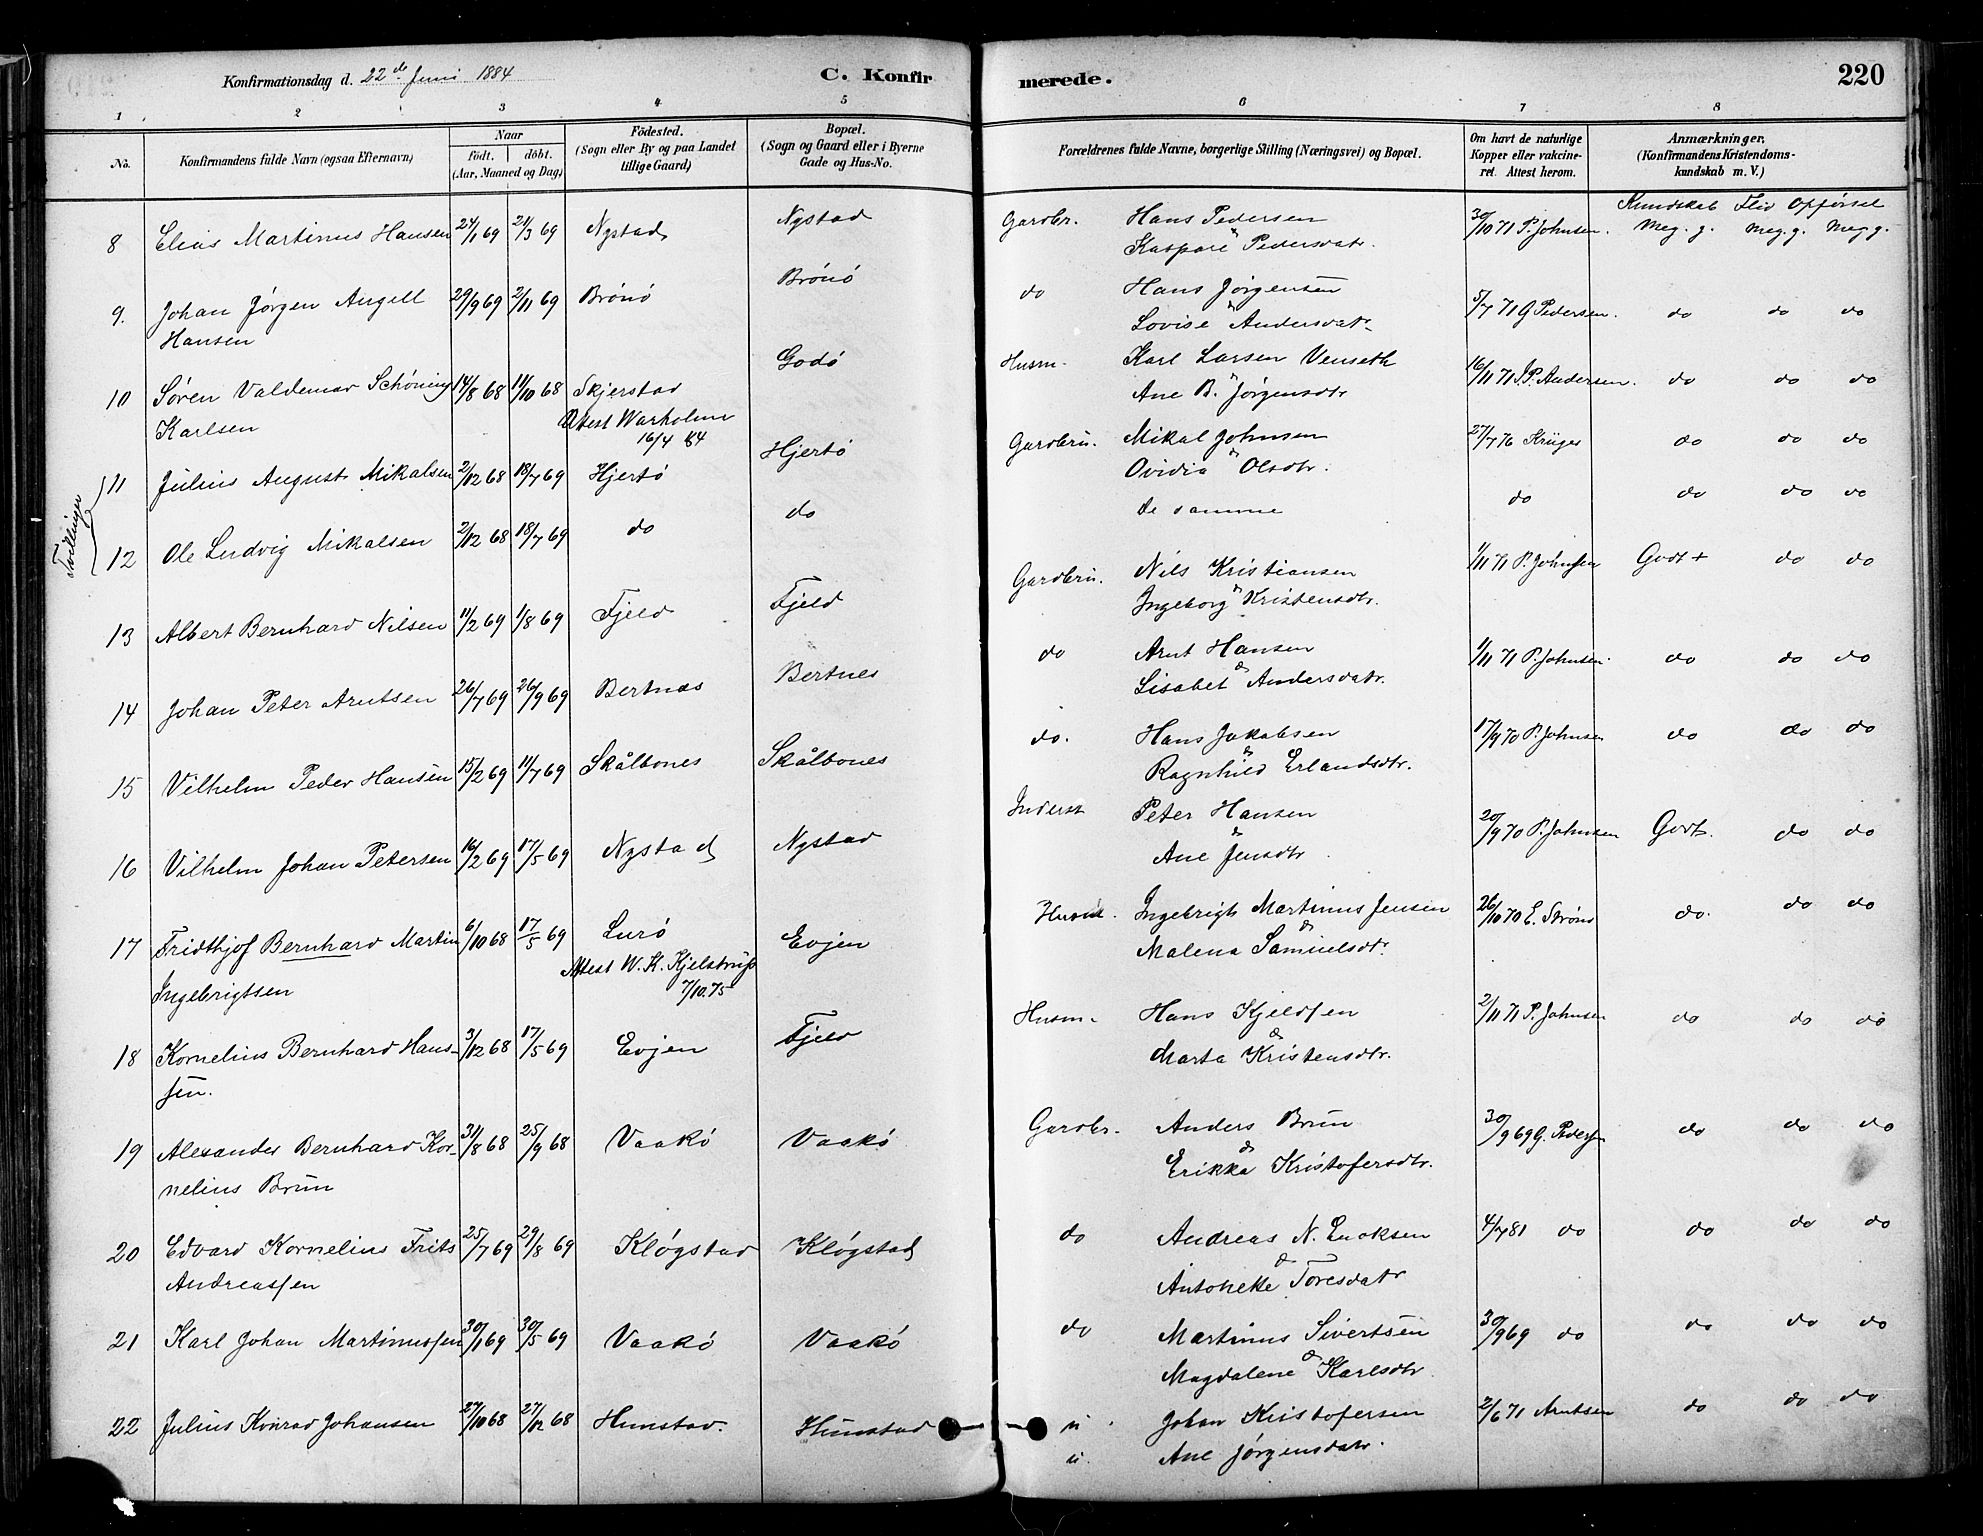 Konfirmationsdag d. 22de Juni 1884
C. Konfir
merede.
220
1 2 3 4 5 6 7 8
No.
Konfirmandens fulde Navn (ogsaa Efternavn)
Naar
födt. döbt.
(Aar, Maaned og Dag)
Födested.
(Sogn eller By og paa Landet
tillige Gaard)
Bopæl.
(Sogn og Gaard eller i Byerne
Gade og Hus-No.
Forældrenes fulde Navne, borgerlige Stilling (Næringsvei) og Bopæl.
Om havt de naturlige
Kopper eller vakcine-
ret. Attest herom.
Anmærkninger.
(Konfirmandens Kristendoms-
kundskab m. V.)
Kundskab Flid Opförsel
8 Elias Martinus Hansen 24/1 69 21/3 69 Nystad Nystad Gardbr. Hans Pedersen 30/10 71 P. Johnsen. Meg. g. Meg. g. Meg. g.
Kaspare Pedersdatr.
9. Johan Jørgen Angell 29/9 69 2/11 69 Brönö Brönö do Hans Jørgensen 5/7 71 G Pedersen. do do do
Hansen
Lovise Andersdatr.
10 Søren Valdemar Schöning 14/8 68 11/10 68 Skjerstad Godö Husm. Karl Larsen Venseth 16/11 71 J. P. Andersen. do do do
Karlsen Attest Warholm
16/4 84
Ane B. Jørgensdtr
Tvillinger
11 Julius August Mikalsen 2/12 68 18/7 69 Hjertö Hjertö Gardbru. Mikal Johnsen 27/7 76 Krüger do do do
Ovidia Olsdtr.
12 Ole Ludvig Mikalsen 2/12 68 18/7 69 do do de samme do do do do
13 Albert Bernhard Nilsen 11/2 69 1/8 69 Fjeld Fjeld Gardbru. Nils Kristiansen 1/11 71 P. Johnsen Godt + do do
Ingeborg Kristensdtr.
14 Johan Peter Arntsen 26/7 69 26/9 69 Bertnes Bertnes do Arnt Hansen 1/11 71 P. Johnsen. do do do
Lisabet Andersdatr.
15 Vilhelm Peder Hansen 15/2 69 11/7 69 Skålbones Skålbones do. Hans Jakobsen 17/9 70 P. Johnsen do do do
Ragnhild Erlandsdtr.
16 Vilhelm Johan Petersen 16/2 69 17/5 69 Nystad Nystad Inderst Peter Hansen 20/9 70 P. Johnsen Godt. do do
Ane Jensdtr
17 Fridthjof Bernhard Martin 6/10 68 17/5 69 Lurö Evjen Ingebrigt Martinus Jensen 26/10 70 E. Strönd do. do do
Ingebrigtsen Attest W. K. Kjelstrup
7/10.75
Malena Samuelsdtr.
18 Kornelius Bernhard Hans- 3/12 68 17/5 69 Evjen Fjeld Husm. Hans Kjeldsen 2/11 71 P. Johnsen do do do
sen.
Marta Kristensdtr.
19 Alexander Bernhard Kor- 31/8 68 25/9 68 Vaakö Vaakö Gardbr. Anders Brun 30/9 69 G. Peders do do do
nelius Brun
Erikka Kristofersdtr.
20 Edvard Kornelius Frits 25/7 69 29/8 69 Kløgstad Kløgstad do Andreas N. Enoksen 4/7 81 do do do do
Andreassen
Antonette Toresdatr
21 Karl Johan Martinussen 30/1 69 30/5 69 Vaakö Vaakö do Martinus Sivertsen 30/9 69 do do do do
Magdalene Karlsdtr
22 Julius Konrad Johansen 27/10 68 27/12 68 Hunstad. Hunstad " Johan Kristofersen 2/6 71 Arntsen do do do
" Ane Jørgensdatr.